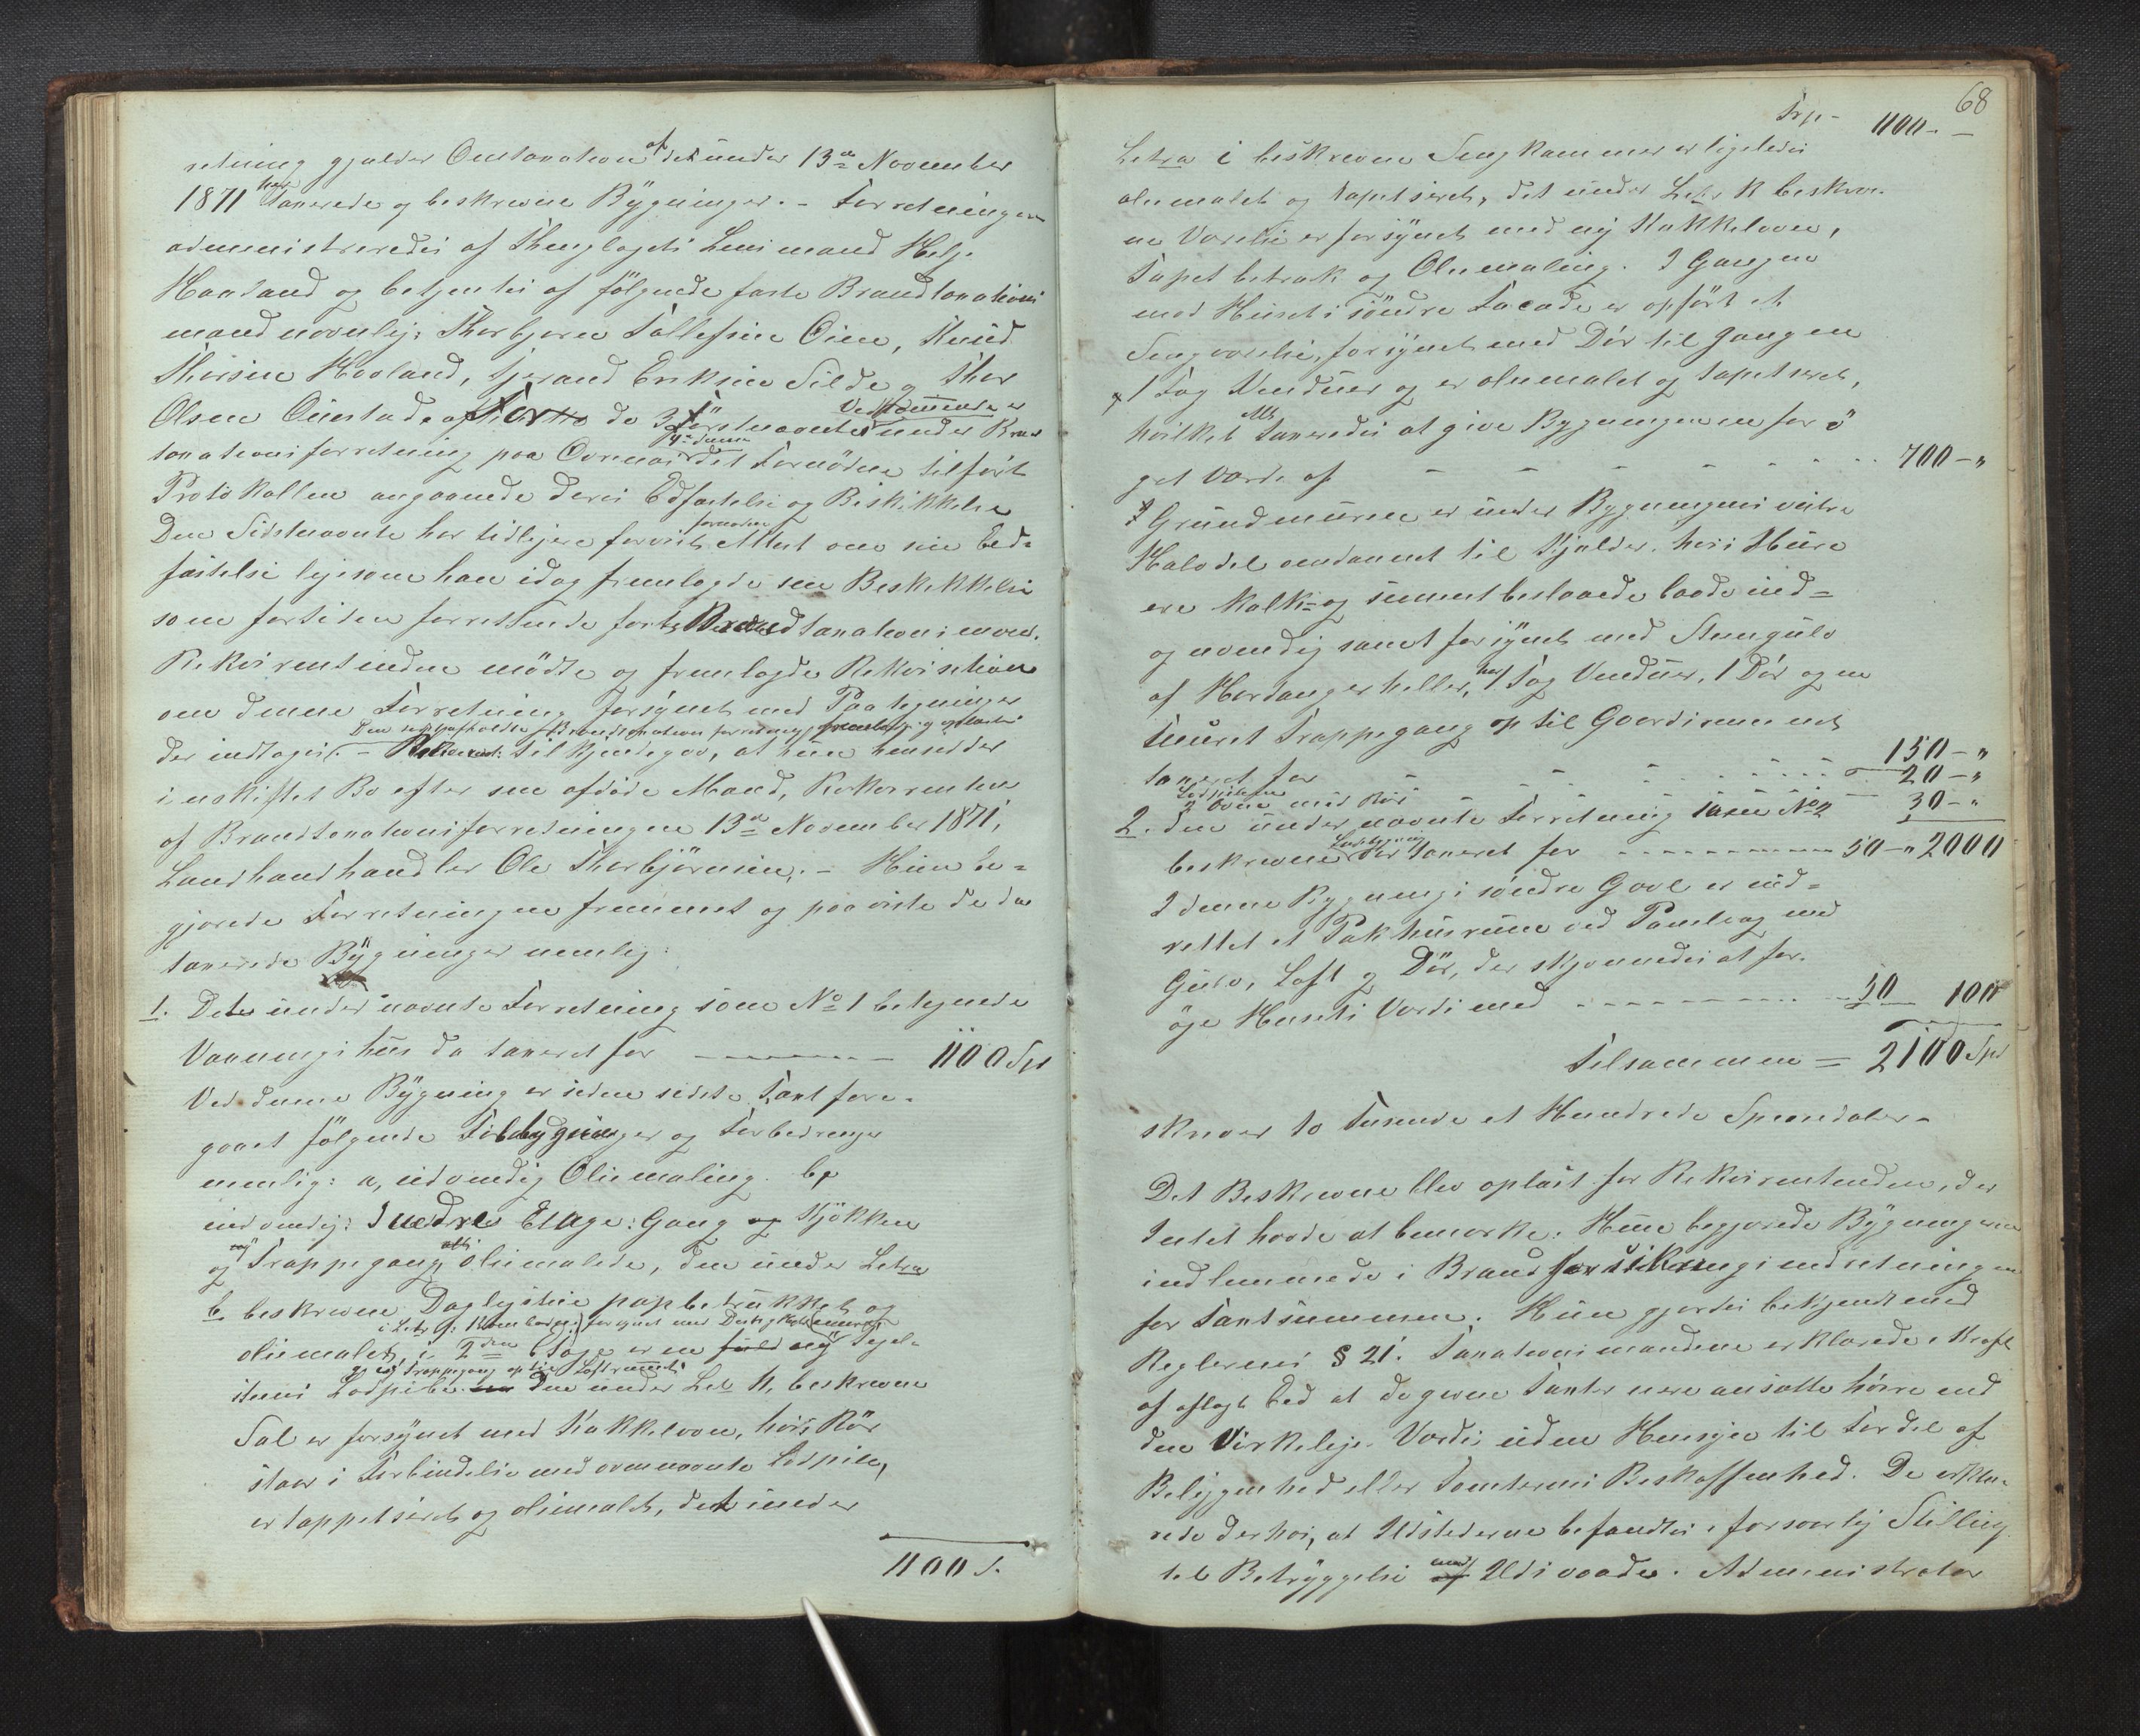 retning gjælder Omtaxation af det under 13de November
1871 her taxerede og beskrevne Bygninger. - Forretningen
administreredes af Thinglagets Lensmand Helje
Haaland og betjentes af følgende faste Brandtaxations
mænd navnlig: Thorbjørn Tollefsen Oime, Knud
Thorsen Hovland, Sjerand Eriksen Silde og Thor
Olsen Ouestad, af de 3 Førstnævnte Vedkommende er under Brand
taxationsforretning paa det Fornødne tilført
Protokollen angaaende deres Edfæstelse og Beskikkelse
Den Sidstnævnte har tidligere forevist fornøden Attest om sin Eed-
fæstelse ligesom han idag fremlagde sin Beskikkelse
som for tiden forrettende faste Brandtaxationsmand.
Rekvirentinden mødte og fremlagde Rekvisition
om denne Forretning forsynet med Paategninger
Den sidstafholdte Brandtaxationsforretning fremlagdes og oplæstes
der indtages. - Rekvirent: tilkjendegav, at hun hensidder
i uskiftet Bo efter sin afdøde Mand, Rekvirenten
af Brandtaxationsforretningen 13de November 1871,
Landhandhandler Ole Thorbjørnsen. - Hun be-
gjærede Forretningen fremmet og paaviste de da
taxerede Bygninger nemlig:
1. Det under nævnte Forretning som No 1 betegnede
Vaaningshus da taxeret for - 1100 Spd
Ved denne Bygning er siden sidste Taxt fore-
gaaet følgende Tilbygninger og Forbedringer
nemlig: a, udvendig Oliemaling. b,
indvendig: I nedre Etage: Gang og Kjøkken
og Trappegang alt oliemalede, den under Letra
b beskrevne Dagligstue papbetrukket og
i Letr g: forsynet med
oliemalet, i 2den Etage er en fuld ny Tegl-
og ny Trappegang op til Loftsrummet
stens Lodpibe. Den under Let h, beskrevne
Sal er forsynet med Kakkelovn, hvis Rør
staar i Forbindelse med ovennævnte Lodpibe,
er tappetseret og oliemalet, det under
1100 S.
68
Trp - 1100 -
Letra i beskrevne Sengkammer er ligeledes
oliemalet og tapetseret, det under Letr k beskrev-
ne Værelse er forsynet med ny Kakkelovn,
Tapetbetræk og Oliemaling. I Gangen
mod Husets søndre Facade er opført et
Sengværelse, forsynet med Dør til Gangen
1 Fag Vinduer og er oliemalet og tapetseret,
hvilket Alt taxeredes at give Bygningen en forø
get Værdi af - - - 700 - "
I Grundmuren er under Bygningens vestre
Halvdel omdannet til Kjælder, hvis Mure
ere kalk- og sementbeslaaede baade ind-
og uvendig samt forsynet med Stengulv
af Hardangerheller, har 1 Fag Vinduer, 1 Dør og en
muret Trappegang op til Gaardsrummet
taxeret for - - - 150 - "
Lodpiben - 20 - "
2 Ovne med Rør - 30 - "
2. Den under nævnte Forretning som No 2
beskrevne Udbygning taxeret for - - - 50 - " 2000
I denne Bygnings søndre Gavl er ind-
rettet et Pakhusrum ved Panelvæg med
Gulv, Loft og Dør, der skjønnedes at for-
øge Husets Værdi med - - - 50 100
Tilsammen = 2100 Spd
skriver to Tusende et Hundrede Speciedaler -
Det Beskrevne blev oplæst for Rekvirentinden, der
Intet havde at bemærke. Hun begjærede Bygningerne
indlemmede i Brandforsikringsindretningen
for Taxtsummen. Hun gjordes bekjendt med
Reglernes § 21. Taxationsmændene erklærede i Kraft
af aflagt Eed at de givne Taxter vare ansatte høiere end
den Virkelige Værdi uden Hensyn til Fordel af
Beliggenhed eller Tomternes Beskaffenhed. De erklæ-
rede derhos, at Ildstederne befandtes i forsvarlig Stilling
til Betryggelse mod Ildsvaade. Administrator